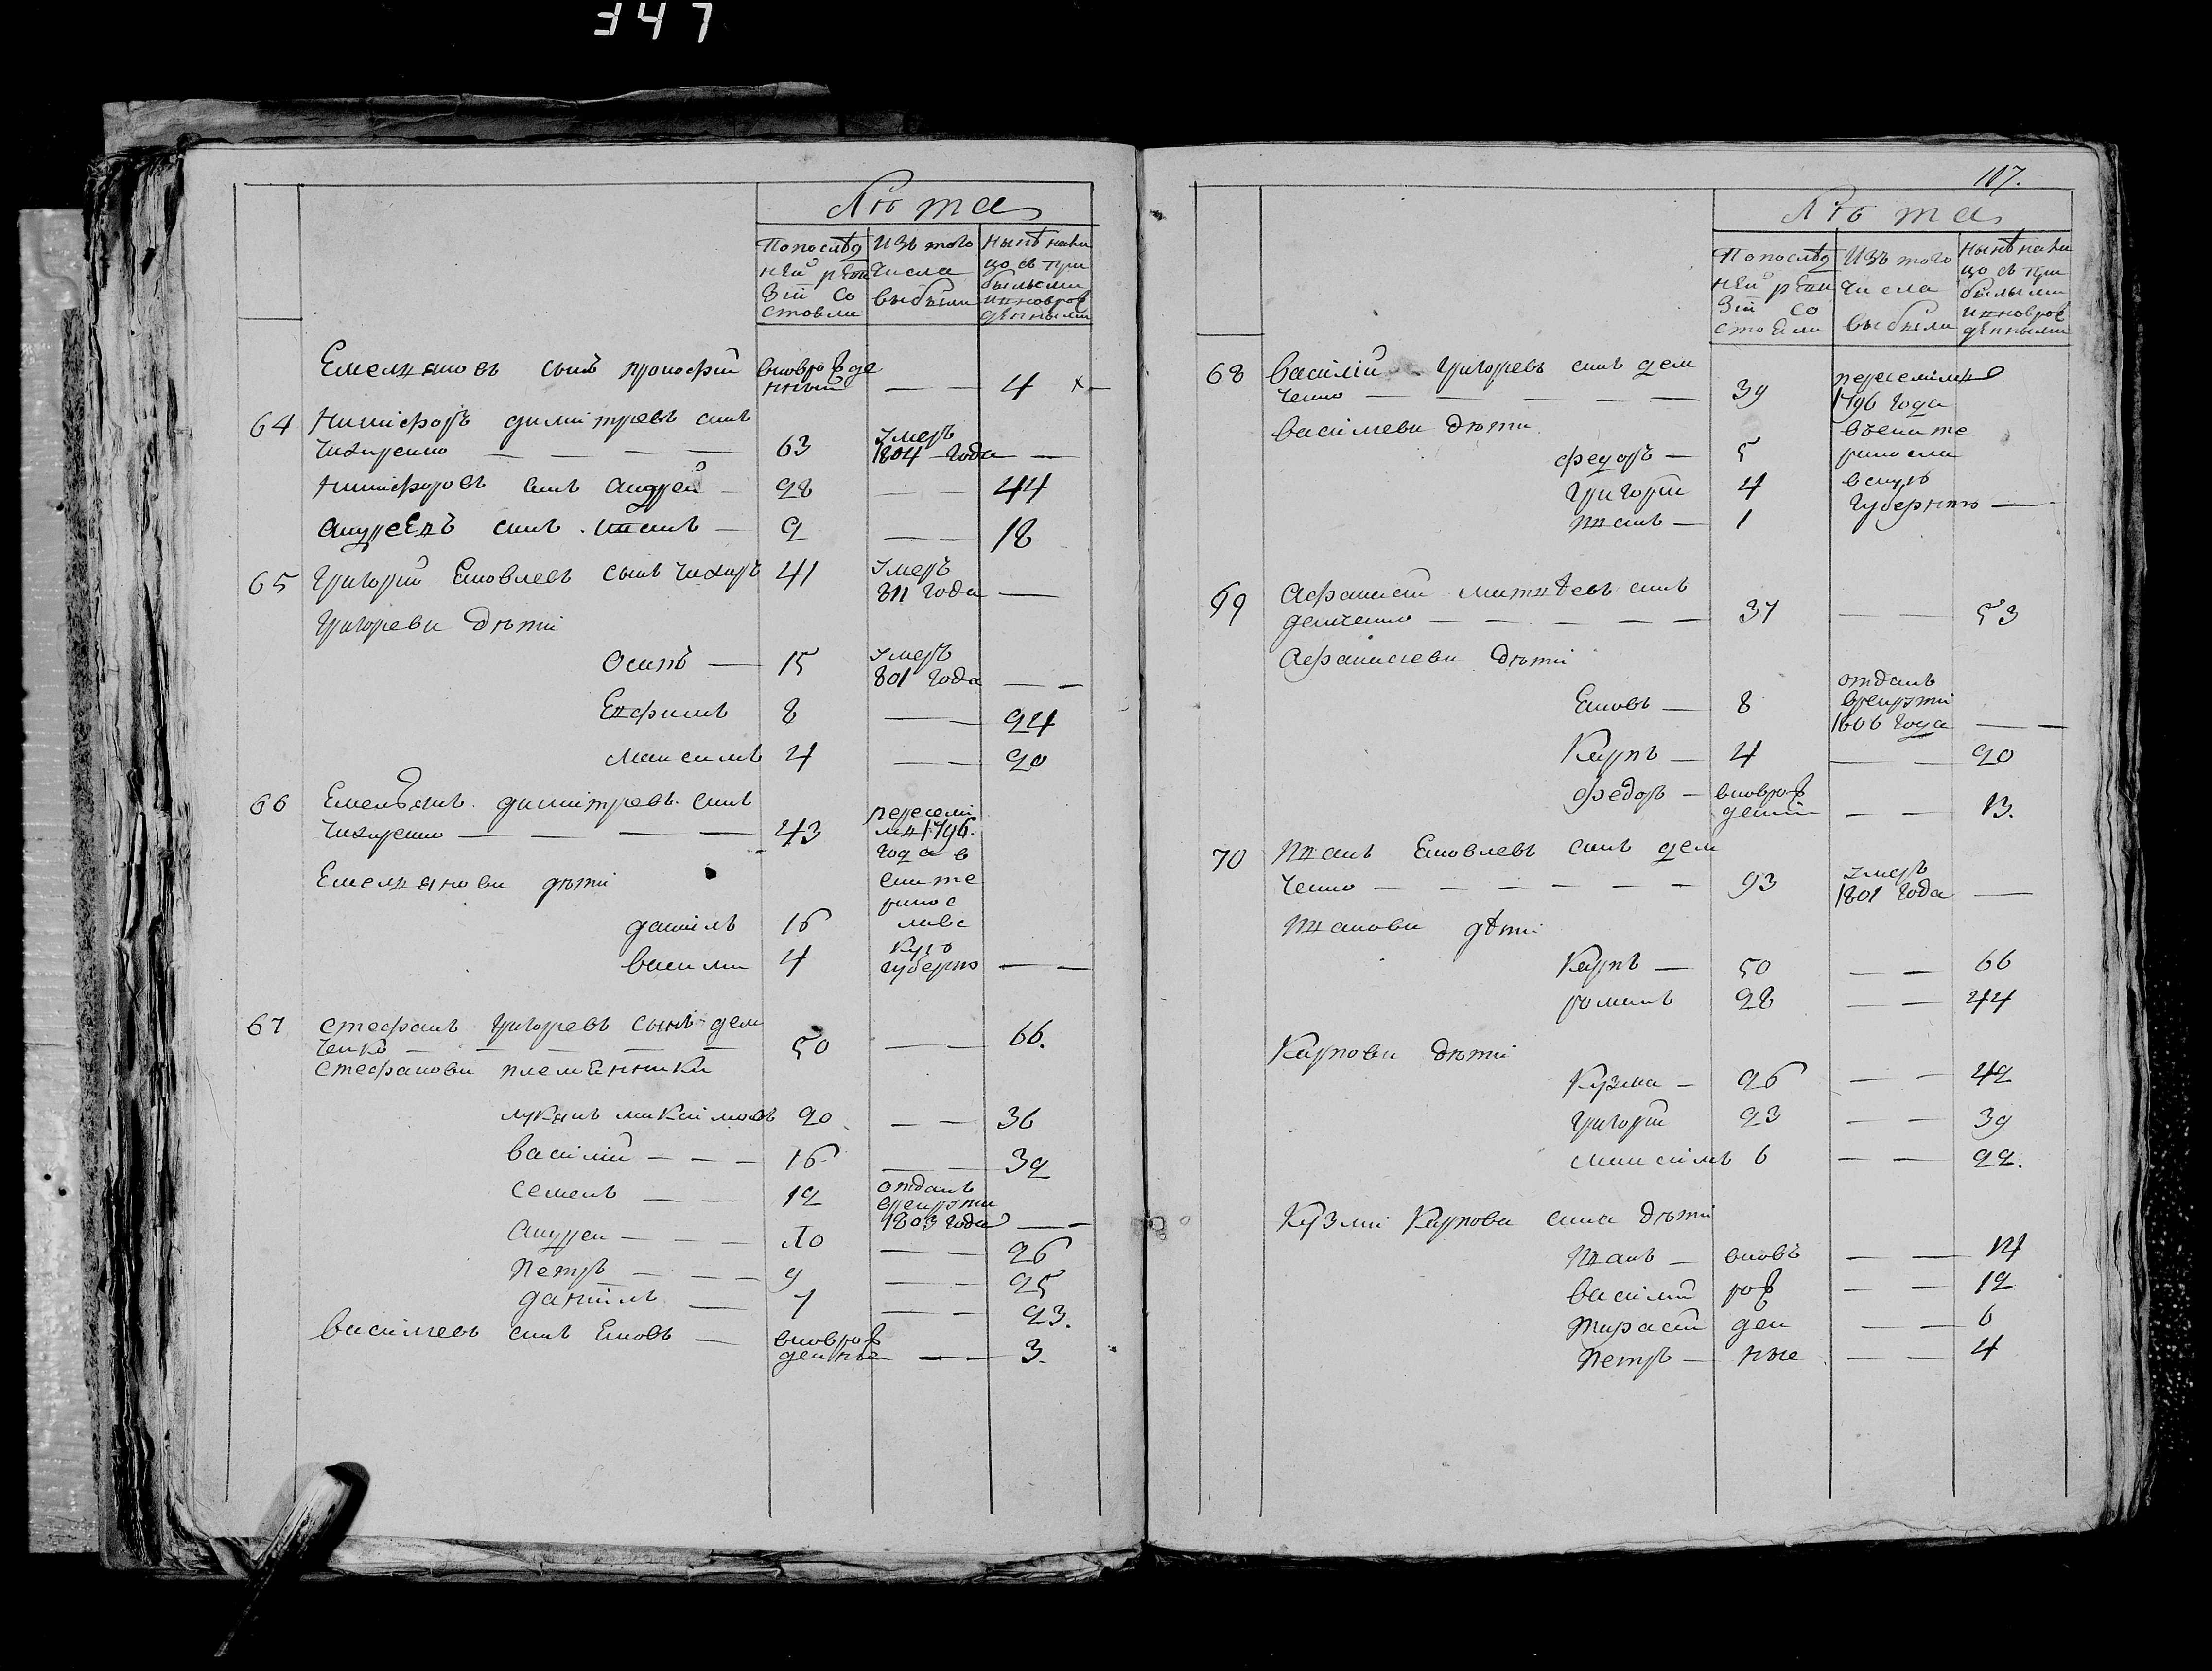 347
Лѣта
По послѣд
ней реви
зіи со
стояли
Изъ того
числа
выбыли
Нынѣ на ли
цо съ при
былыми
и новорож
денными
Емельяновъ сынъ прокофій
вновь рожде
нный — — 4 ×
64 Никифоръ димитревъ сынъ
Чихиренко — — — — 63
Умеръ
1804 года — —
Никифоровъ сынъ андрей — 28 — — 44
андреевъ сынъ иванъ — 2 — — 18
65 Григорій Яковлевъ сынъ Чихиръ 41
Умеръ
811 года —
Григореви дѣти
Осипъ — 15
Умеръ
801 года — —
Ефимъ 8 — — 24
Максимъ 4 — — 20
66 Емельянъ димитревъ сынъ
Чихиренко — — — — 43
пересели
ли 1796.
года в
екате
рино с
лавс
кую
губерню — —
Емельянови дѣти
данилъ 16
василий 4
67 Стефанъ григоревъ сынъ дем
ченко — — — — — 50 — — 66.
Стефанови племенники
лукянъ максимовъ 20 — — 36
василій — — — 16 — — 32
семенъ — — 12
отданъ
врекруты
1803 года — —
андрей — — — 10 — — 26
петръ — — — 9 — — 25
данилъ — 7 — — 23.
василиевъ сынъ Яковъ —
вноврож
денные — — 3.
117.
Лѣта
По послѣд
ней реви
зіи со
стояли
Изъ того
числа
выбыли
Нынѣ на ли
цо съ при
былыми
и новорож
денными
68 василій григоревъ сынъ дем
ченко — — — — — 39
переселили
1796 года
въекате
рино сла
вскую
губерню —
василиеви дѣти
федоръ — 5
григорій 4
иванъ — 1
69 Афанасій матвѣевъ сынъ
демченко — — — — — 37 — — 53
Афанасиеви дѣти
Яковъ — 8
отданъ
врекруты
1806 года — —
Карпъ — 4 — — 20
федоръ —
вновьрож
денній — — 13.
70 иванъ Яковлевъ сынъ дем
ченко — — — — — — 93
умеръ
1801 года —
иванови дѣти
Карпъ — 50 — — 66
романъ 28 — — 44
Карпови дѣти
Кузма — 26 — — 42
григорій 23 — — 39
максимъ 6 — — 22.
Кузми Карпова сина дѣти
иванъ — вновь — — 14
василий рож — — 12
тарасій ден — — 6
петръ — ные — — 4